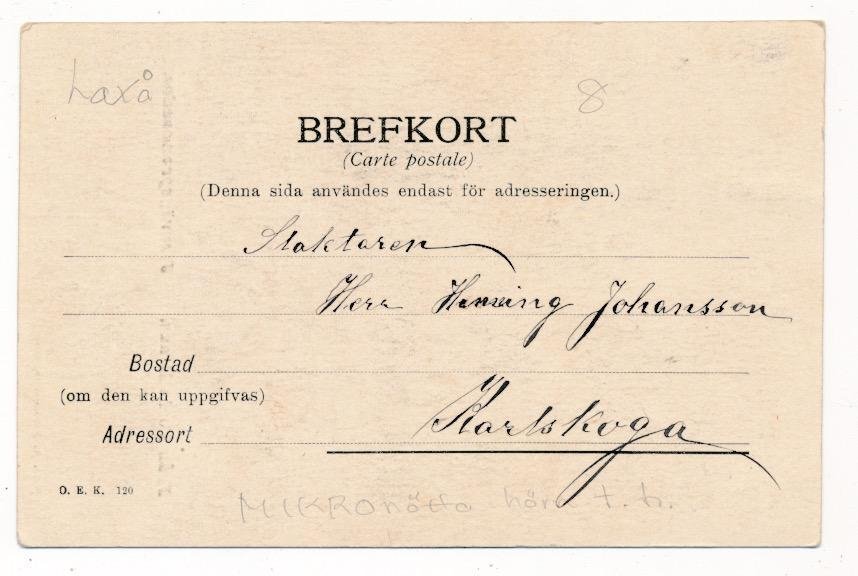 Laxå
8
BREFKORT
(Carte postale)
(Denna sida användes endast för adresseringen.)
Slaktaren
Herr Henning Johansson
Bostad
(om den kan uppgifvas)
Karlskoga
Adressort
O. E. K. 120
MIKRO hörn t. h.